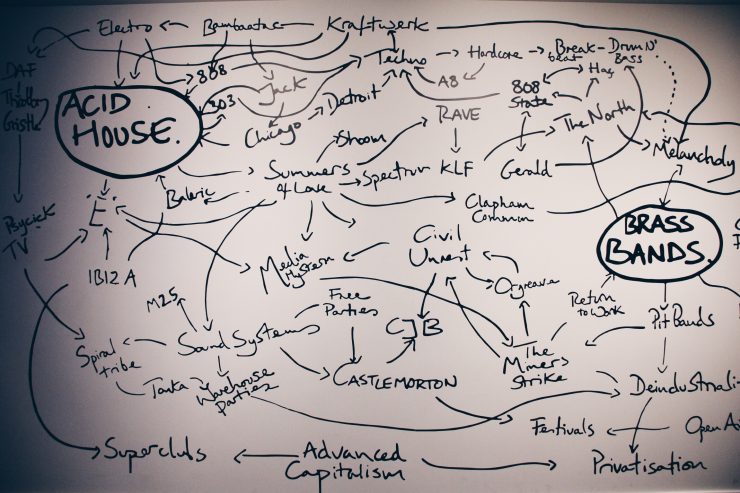 Electro
Bambaataa
Kraftwerk
DAF
Throbbing
Gristle
ACID
HOUSE.
808
303
Jack
Chicago
Detroit
Techno
Hardcore
Break-
beat
Drum N'
Bass
A8
RAVE
808
State
Hac
The North
Melancholy
Shoom
Summers
of Love
Spectrum
KLF
Gerald
Balaric
Clapham
Common
BRASS
BANDS.
Psychick
TV
'E'
IBIZA
Media
Hysteria
Civil
Unrest
Orgreave
M25
Free
Parties
CJB
Return
to Work
Pit Bands
Spiral
tribe
Sound Systems
The
Miners
Strike
Tonka
Warehouse
Parties
CASTLEMORTON
Deindustriali
Festivals
Open Ai
Superclubs
Advanced
Capitalism
Privatisation